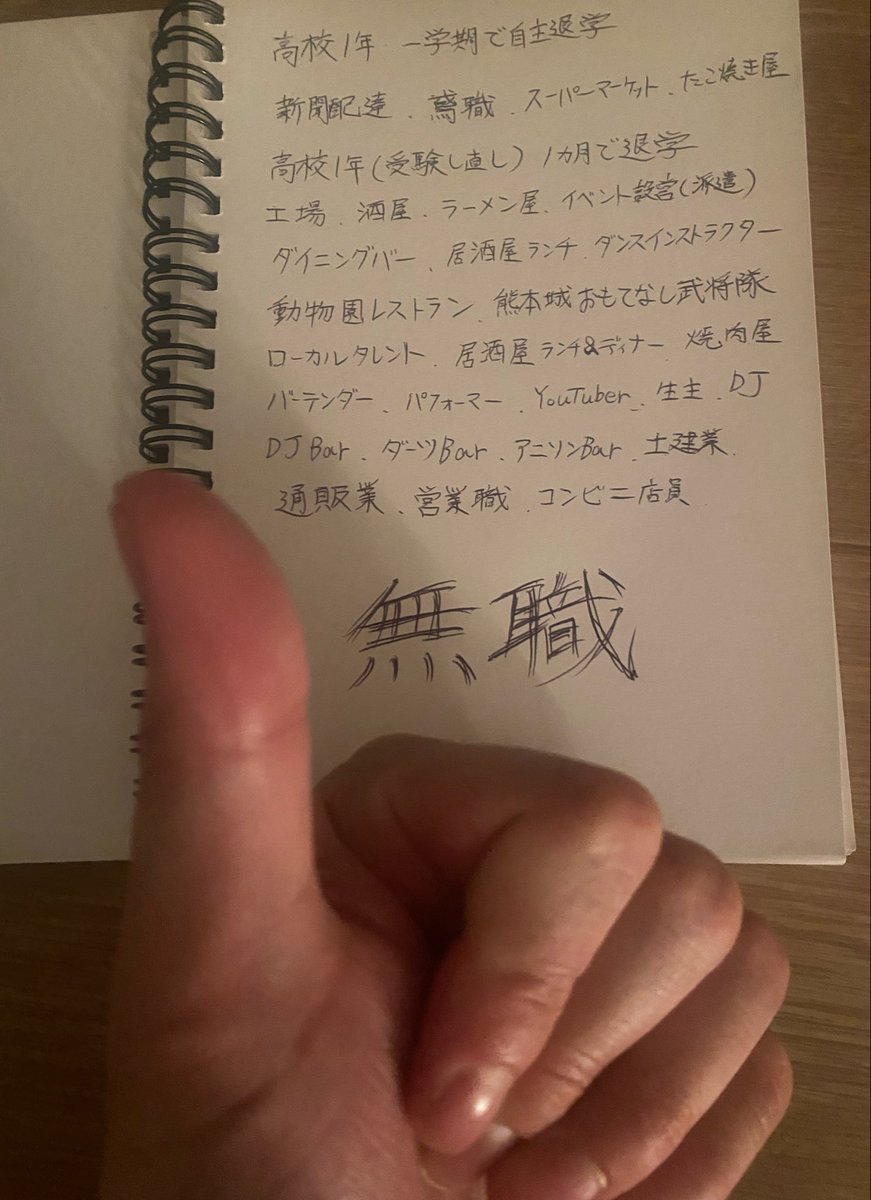 高校1年 一学期で自主退学
新聞配達、鳶職、スーパーマーケット、たこ焼き屋
高校1年(受験し直し) 1カ月で退学
工場、酒屋、ラーメン屋、イベント設営(派遣)
ダイニングバー、居酒屋ランチ、ダンスインストラクター
動物園レストラン、熊本城おもてなし武将隊
ローカルタレント、居酒屋ランチ&ディナー、焼肉屋
バーテンダー、パフォーマー、YouTuber、生主、DJ
DJ Bar、ダーツBar、アニソンBar、土建業、
通販業、営業職、コンビニ店員
無職